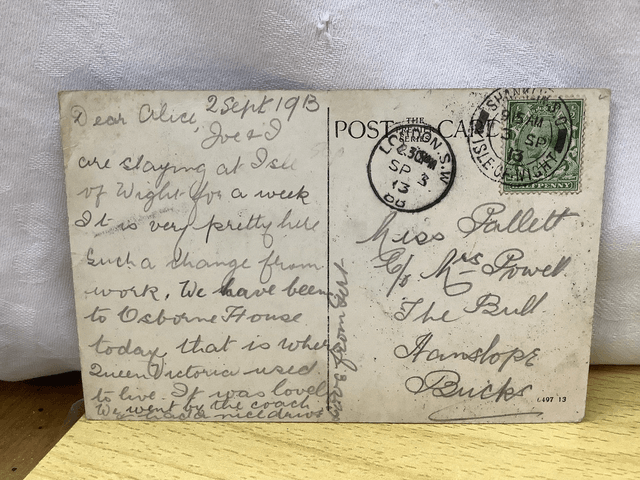 2 Sept 1913
Dear Alice,
Joe & I
are staying at Isle
of Wight for a week
It is very pretty here
Such a change from
work, We have been
to Osborne House
today, that is where
Queen Victoria used
to live. It was lovely
We went by the coach
had a nice drive
love from Gert
POST CARD
THE
SERIES
LONDON.S.W
2.30PM
SP 3
13
SHANKLIN
9 15 AM
3 SP
13
ISLE OF WIGHT
HALFPENNY
Miss Pallett
C/o Mrs Powell
The Bull
Hanslope
Bucks
6497 13